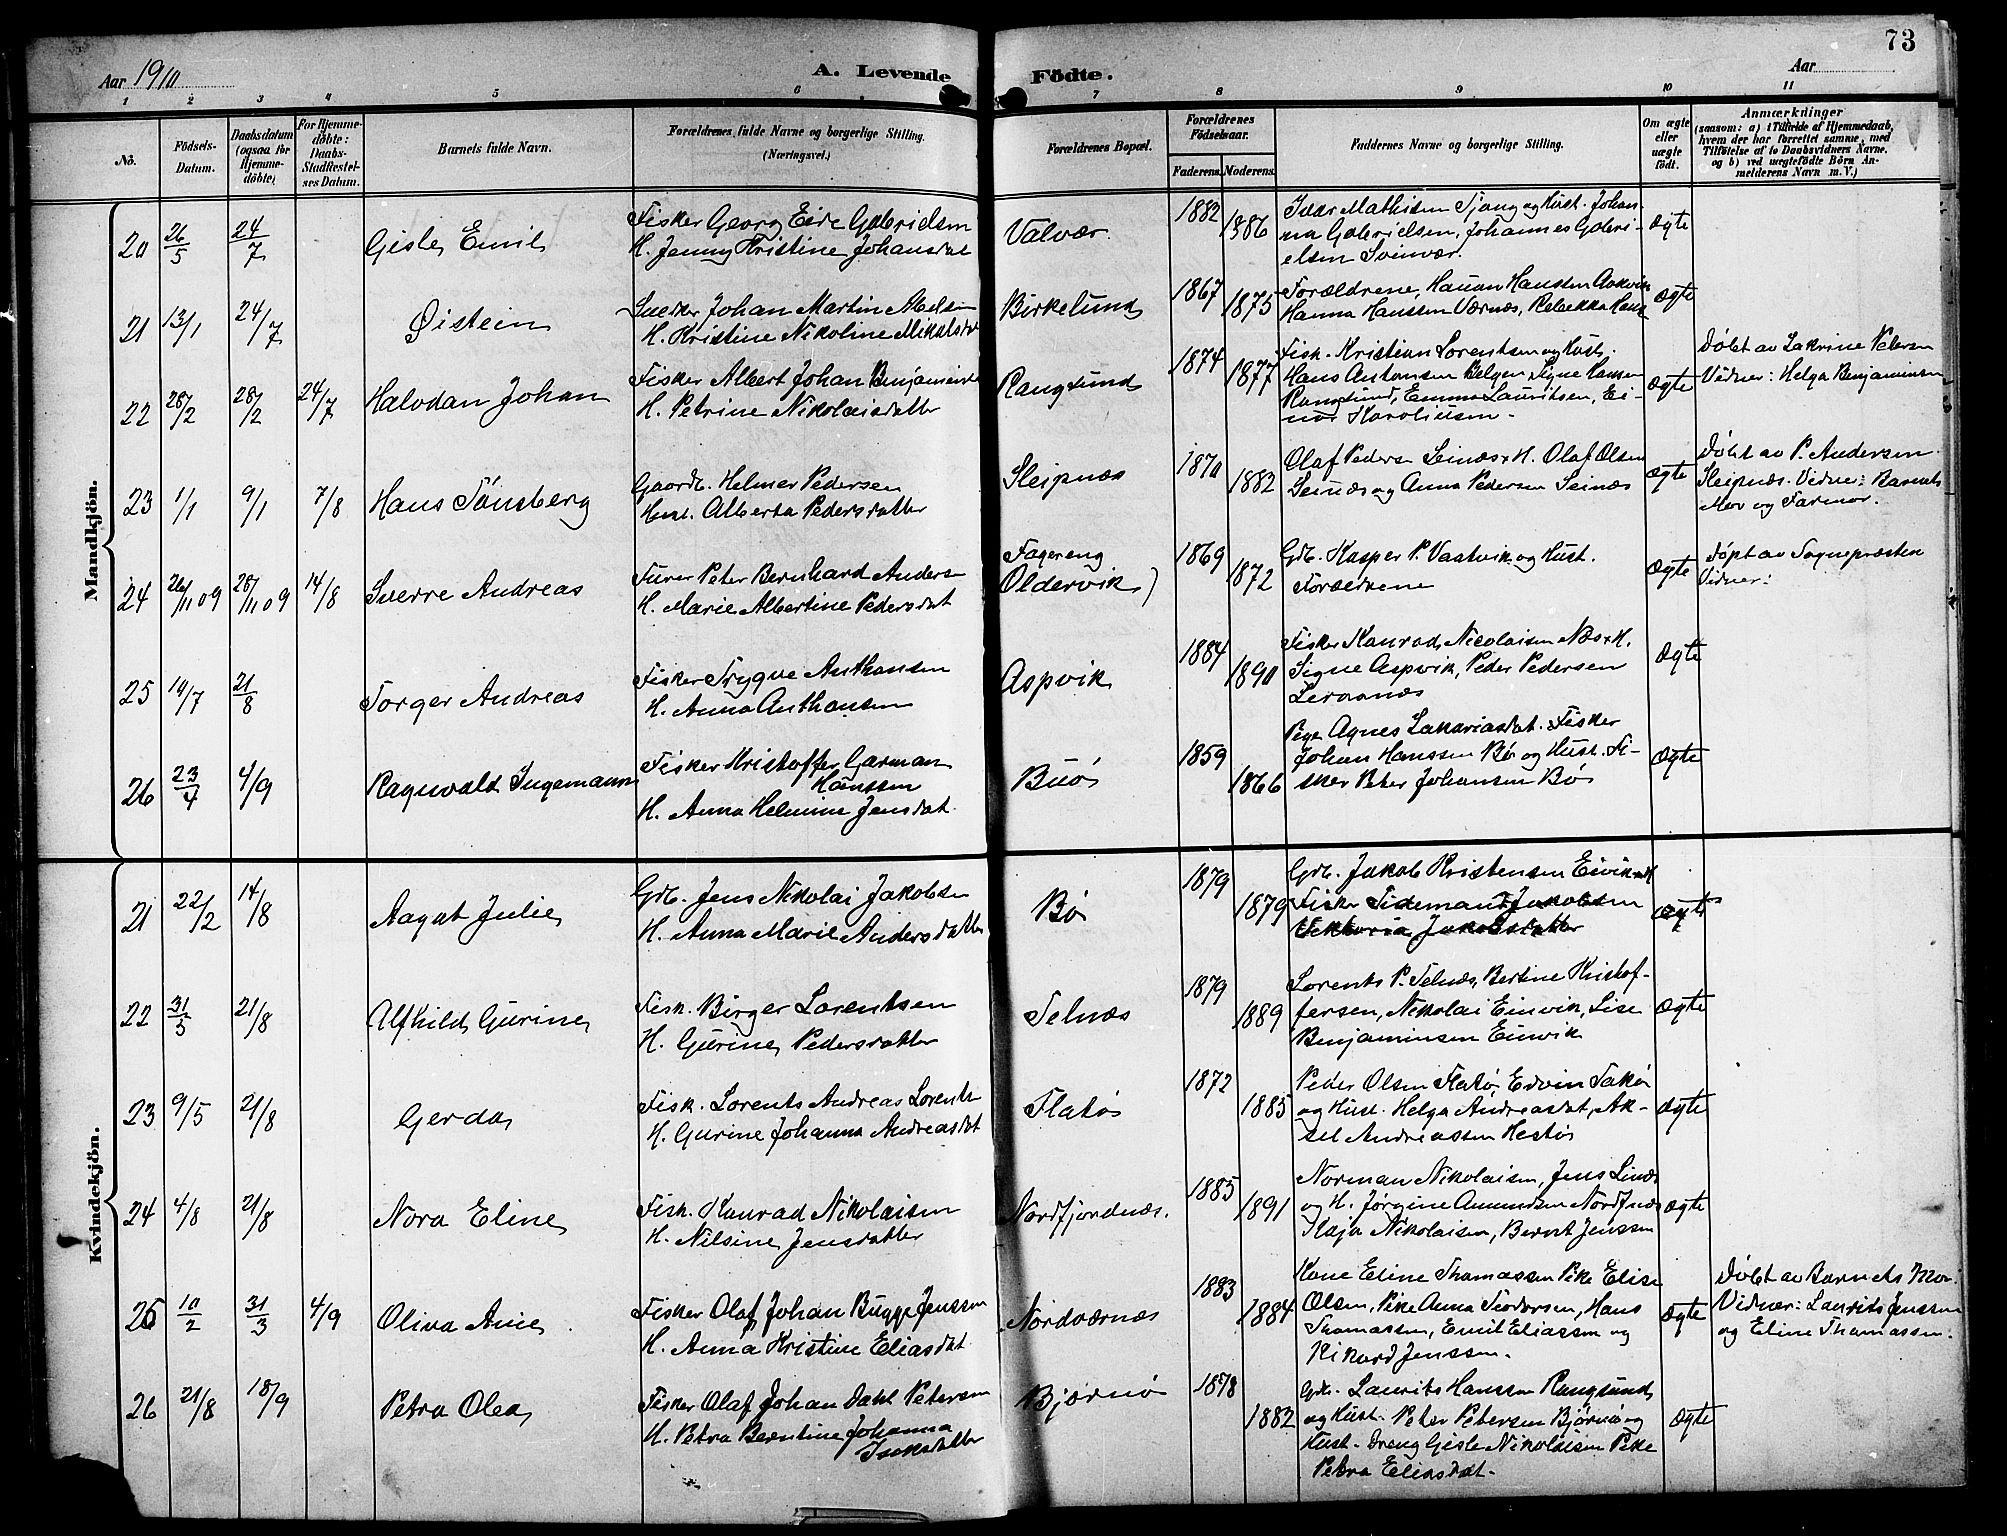 73
Aar 1910
A. Levende Födte.
Aar
1 2 3 4 5 6 7 8 9 10 11
No.
Födsels-Datum.
Daabsdatum (ogsaa for Hjemme-döbte)
For Hjemme-döbte: Daabs-Stadfæstel-ses Datum.
Barnets fulde Navn.
Forældrenes fulde Navne og borgerlige Stilling.
(Næringsvei.)
Forældrenes Bopæl.
Forældrenes Födselsaar.
Faderens. Moderens.
Faddernes Navne og borgerlige Stilling.
Om ægte eller uægte födt.
Anmærkninger
(saasom: a) i Tilfælde af Hjemmedaab,
hvem der har forrettet samme, med
Tilföielse af to Daabsvidners Navne,
og b) ved uægtefödte Börn An-
melderens Navn m. V.)
Mandkjön.
20 26/5 24/7 Gisle Emil
Fisker Georg Eide Gabrielsen
H. Jenny Kristine Johansdat
Valvær 1882 1886
Ivar Mathisen Tjong og Hust. Johan-
na Gabrielsen, Johannes Gabri-
elsen Svinvær.
Ægte
21 13/1 24/7 Øistein
Snedker Johan Martin Abelsen
H. Kristine Nikoline Mikalsdat
Birkelund 1867 1875
Forældrene, Hauan Hansen
Hanna Hanssen Værnæs, Rebekka Hans
Ægte
22 28/2 28/2 24/7 Halvdan Johan
Fisker Albert Johan Benjaminsen
H. Petrine Nikolaisdatter
Rangsund 1874 1877
Fisk. Kristian Lorentsen og Hust.
Hans Antonsen Belgen Signe Hansen
Rangsund, Emma Lauritsen, Ei-
nar Karoliussen -
Ægte
Døbt av Lakrine Petersen
Vidner: Helga Benjaminsen
23 1/1 9/1 7/8 Hans Tönsberg
Gaardb. Helmer Pedersen
Hust. Alberta Pedersdatter
Sleipnæs 1870 1882
Olaf Pedersen Seinæs & H. Olaf Olsen
Seinæs og Anna Pedersen Seinæs
Ægte
Døbt av P. Andersen
Sleipnæs. Vidner: Barnets
Mor og Farmor.
24 26/11 09 28/11 09 14/8 Sverre Andreas
Furer Peter Bernhard Andersen
H. Marie Albertine Pedersdat
Fagereng
Oldervik) 1869 1872
Grdb. Kasper P. Vaatvik og Hust.
Forældrene
Ægte
Døpt av Sognepræsten
Vidner:
25 14/7 21/8 Torger Andreas
Fisker Trygve Anthonsen
H. Anna Anthonsen
Aspvik 1884 1890
Fisker Konrad Nicolaisen Næs & H.
Signe Aspvik, Peder Pedersen
Leraanæs
Ægte
26 23/4 4/9 Ragnvald Ingemann
Fisker Kristoffer Garman
Hanssen
H. Anna Helmine Jensdat.
Buø 1859 1866
Pige Agnes Zakariasdat. Fisker
Johan Hanssen Bø og Hust. Fi-
sker Peter Johansen Bø
Ægte
Kvindekjön.
21 22/2 14/8 Aagat Julie
Grdb. Jens Nikolai Jakobsen
H. Anna Marie Andersdatter
Bø 1879 1879
Grdb. Jakob Kristensen Eivik
Fisker Tidemand Jakobsen
Viktoria Jakobsdatter
Ægte
22 31/5 21/8 Alfhild Gurine
Fisk. Birger Lorentsen
H. Gürine Pedersdatter
Telnæs 1879 1889
Lorents P. Telnæs, Bertine Kristof-
fersen, Nikolai Einvik, Lise
Benjaminsen Einvik
Ægte
23 9/5 21/8 Gerda
Fisk. Lorents Andreas Lorents
H. Gurine Johanna Andreasdat
Flatø 1872 1885
Peder Olsen Flatø Edvin Flatø
og Hust. Helga Andreasdat, Ak-
sel Andreassen Hestø
Ægte
24 4/8 21/8 Nora Eline
Fisk. Konrad Nikolaisen
H. Nilsine Jensdatter
Nordfjordnæs. 1885 1891
Norman Nikolaisen, Jens Linæs
og H. Jørgine Amundsen Nordfnæs
Kaja Nikolaisen, Bernt Jenssen
Ægte
25 10/2 31/3 4/9 Oliva Anie
Fisker Olaf Johan Bugge Jenssen
H. Anna Kristine Eliasdat
Nordværnæs 1883 1884
Kone Eline Thomassen Pike Elise
Olsen, Pike Anna Teodorsen, Hans
Thomassen, Emil Eliassen og
Rikard Jenssen.
Ægte
Døbt av Barnets Mor.
Vidner: Laurits Jenssen
og Eline Thomassen.
26 21/8 18/9 Petra Olea
Fisker Olaf Johan Dahl Petersen
H. Petra Berntine Johanna
Isaksdatter
Bjærnø 1878 1882
Grdb. Laurits Hanssen Rangsund
og Hust. Peter Petersen Bjørnø og
Hust. Dreng Gisle Nikolaisen Pike
Petra Eliasdat.
Ægte